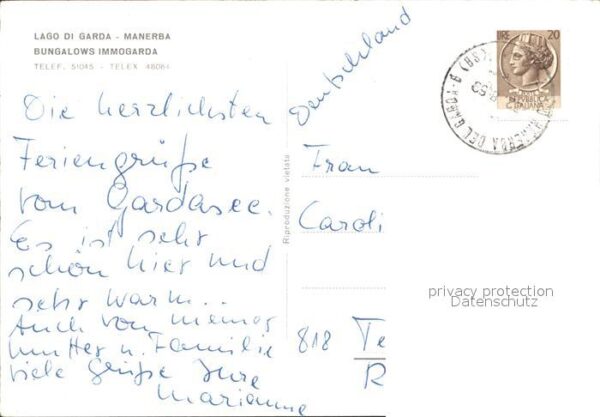 LAGO DI GARDA - MANERBA
BUNGALOWS IMMOGARDA
TELEF. 51045 - TELEX 48084
Die herzlichsten
Feriengrüße
vom Gardasee.
Es ist sehr
schön hier und
sehr warm..
Auch von meiner
Mutter u. Familie
viele Grüße Ihre
Marianne
Riproduzione vietata
Deutschland
LIRE 20
REPVBBLICA
ITALIANA
MANERBA DEL GARDA
Frau
Caroli
818 Te
R
privacy protection
Datenschutz